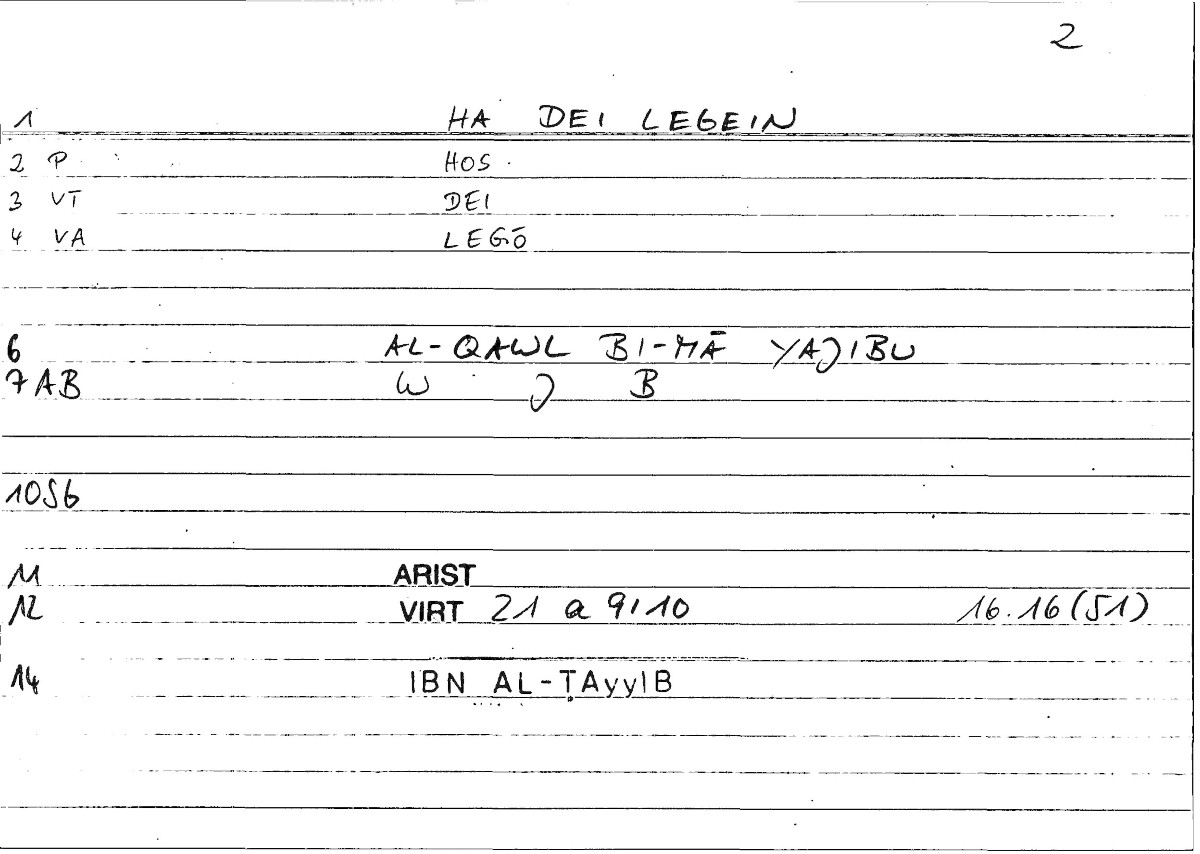 2
1 HA DEI LEGEIN
2 P HOS
3 VT DEI
4 VA LEGŌ
6 AL-QAWL BI-MĀ YAJIBU
7 AB W J B
10 S6
11 ARIST
12 VIRT 21 a 9/10 16.16 (51)
14 IBN AL-ṬAyyIB